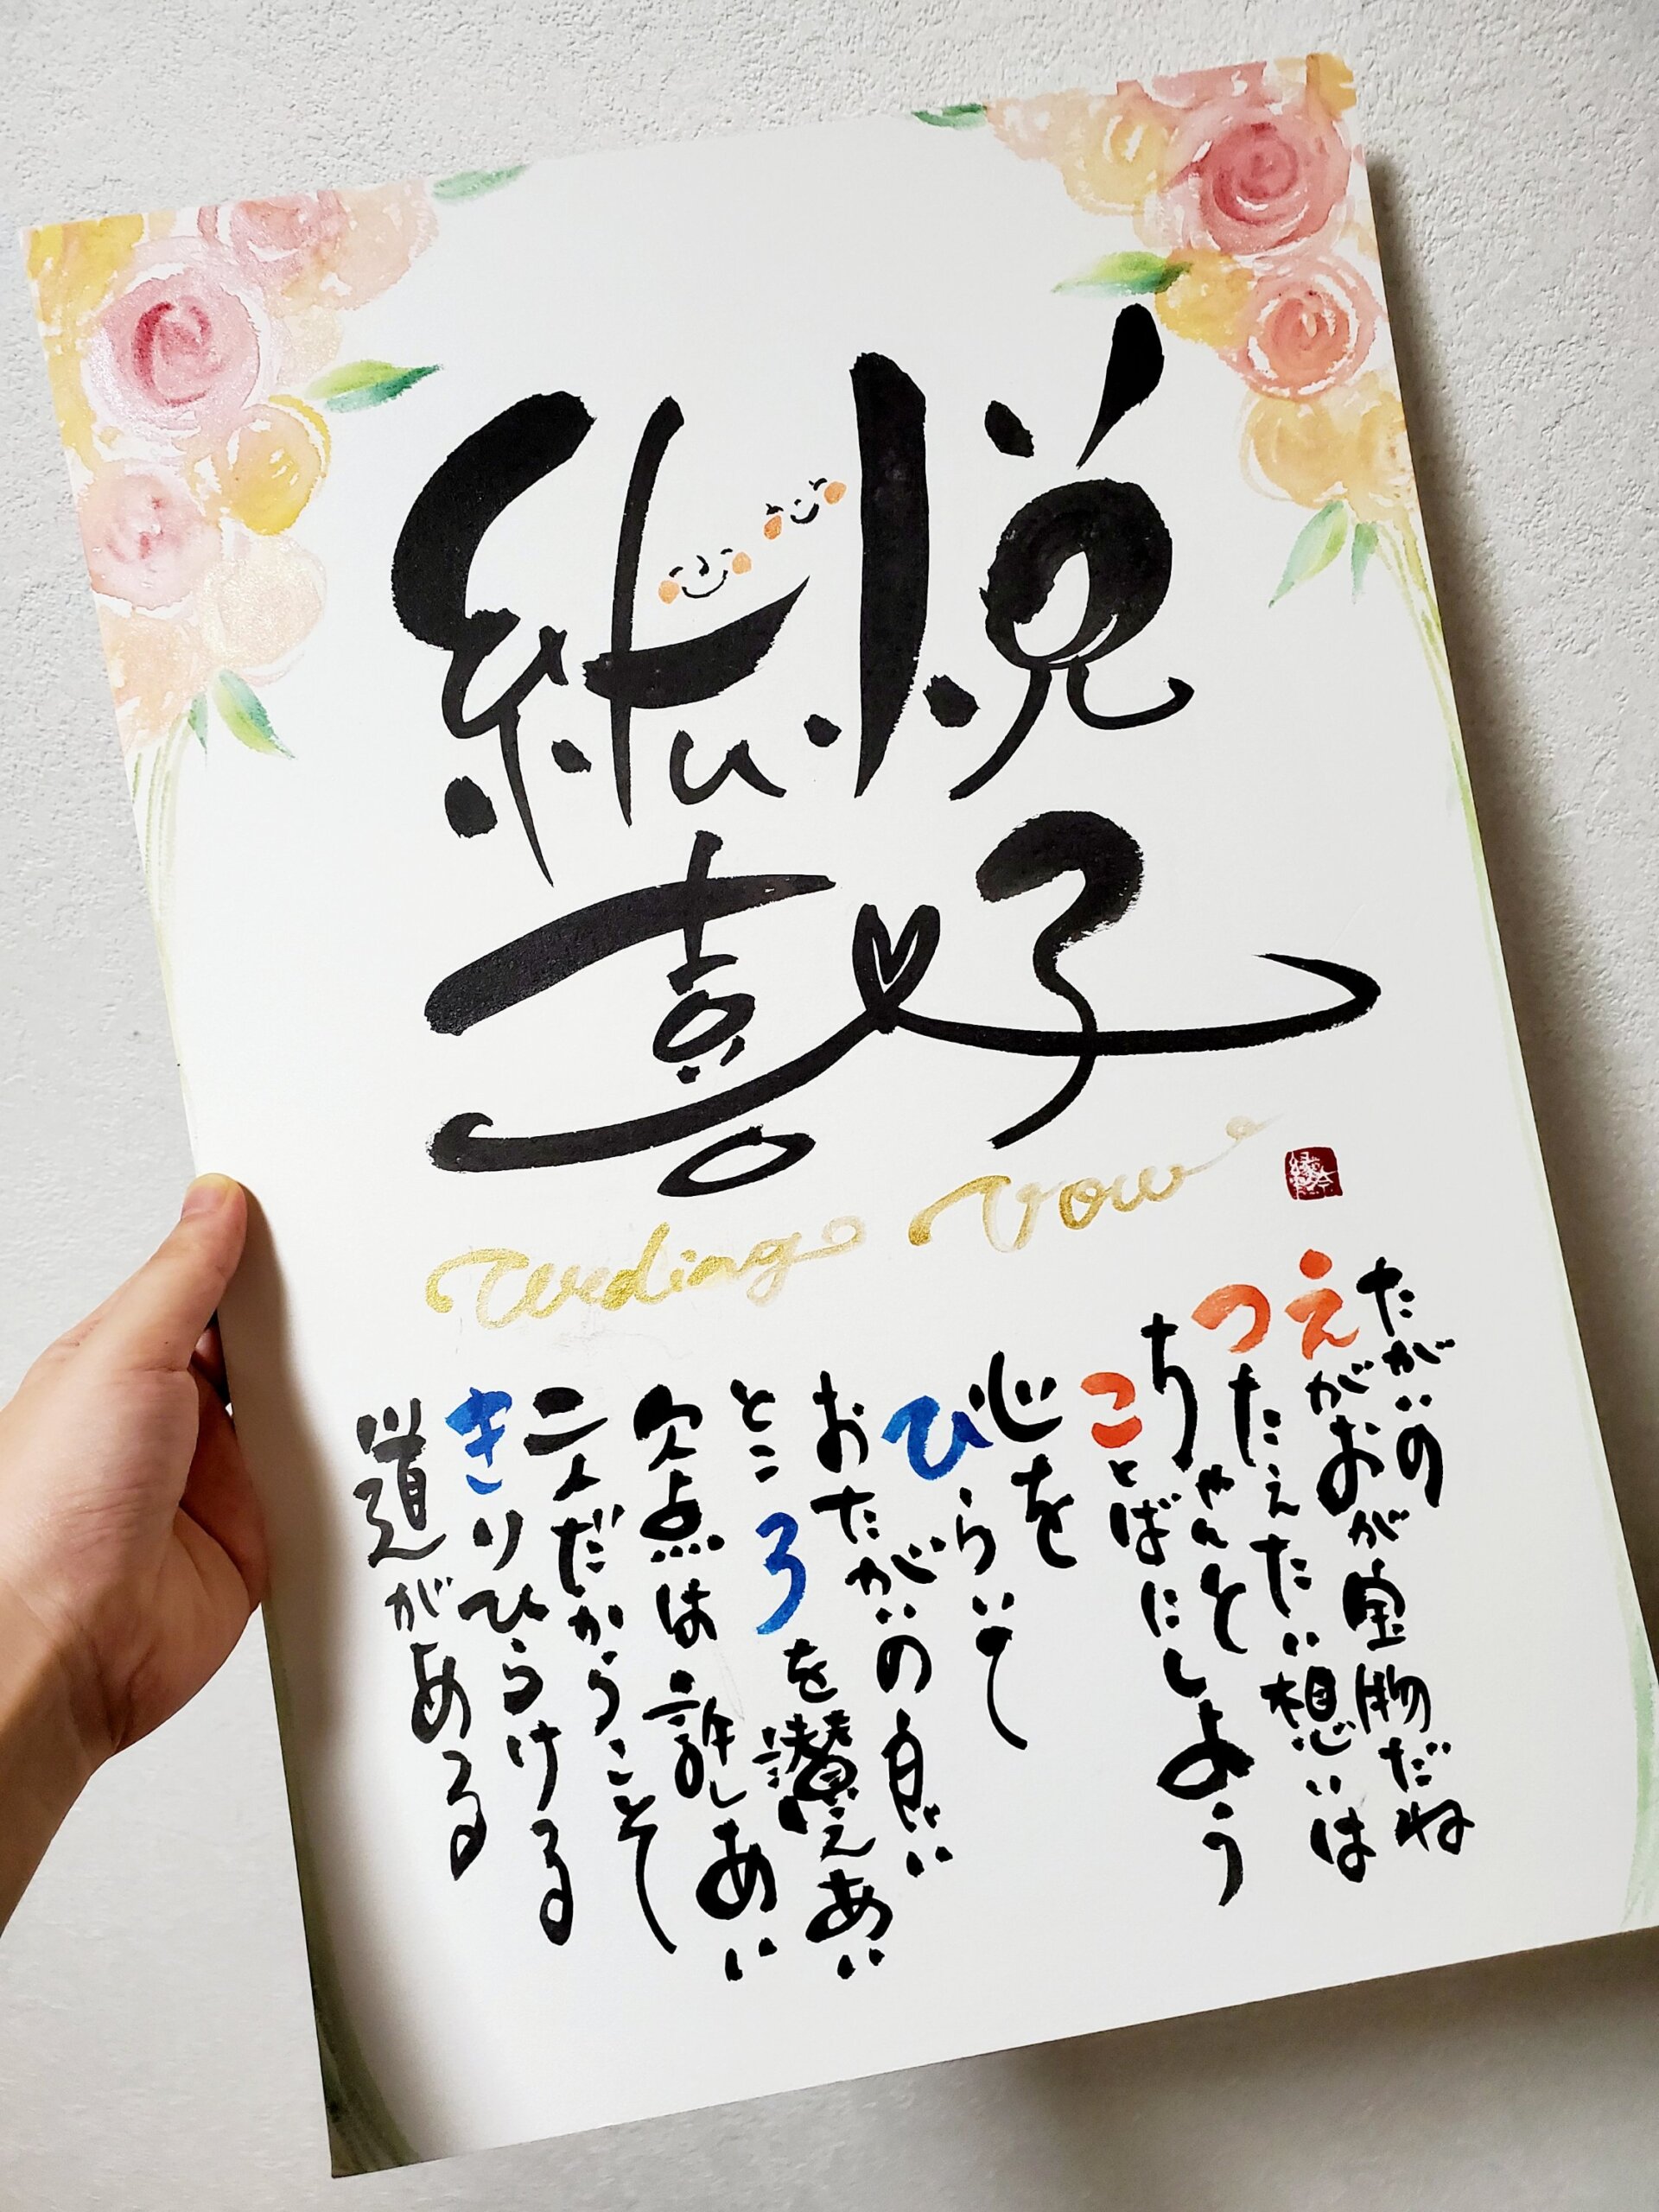 悦子
紘喜
Weding Vow
たがいの
えがおが宝物だね
つたえたい想いは
ちゃんと
ことばにしよう
心を
ひらいて
おたがいの良い
ところを讃えあい
欠点は許しあい
二人だからこそ
きりひらける
道がある